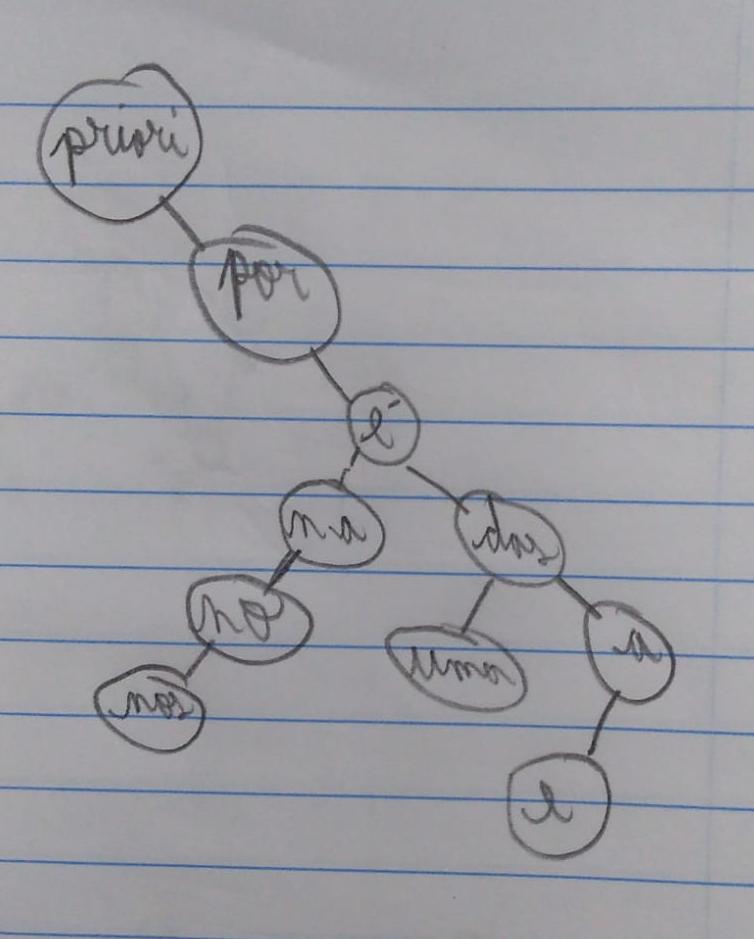 priori
por
é
na
das
no
uma
a
nos
e